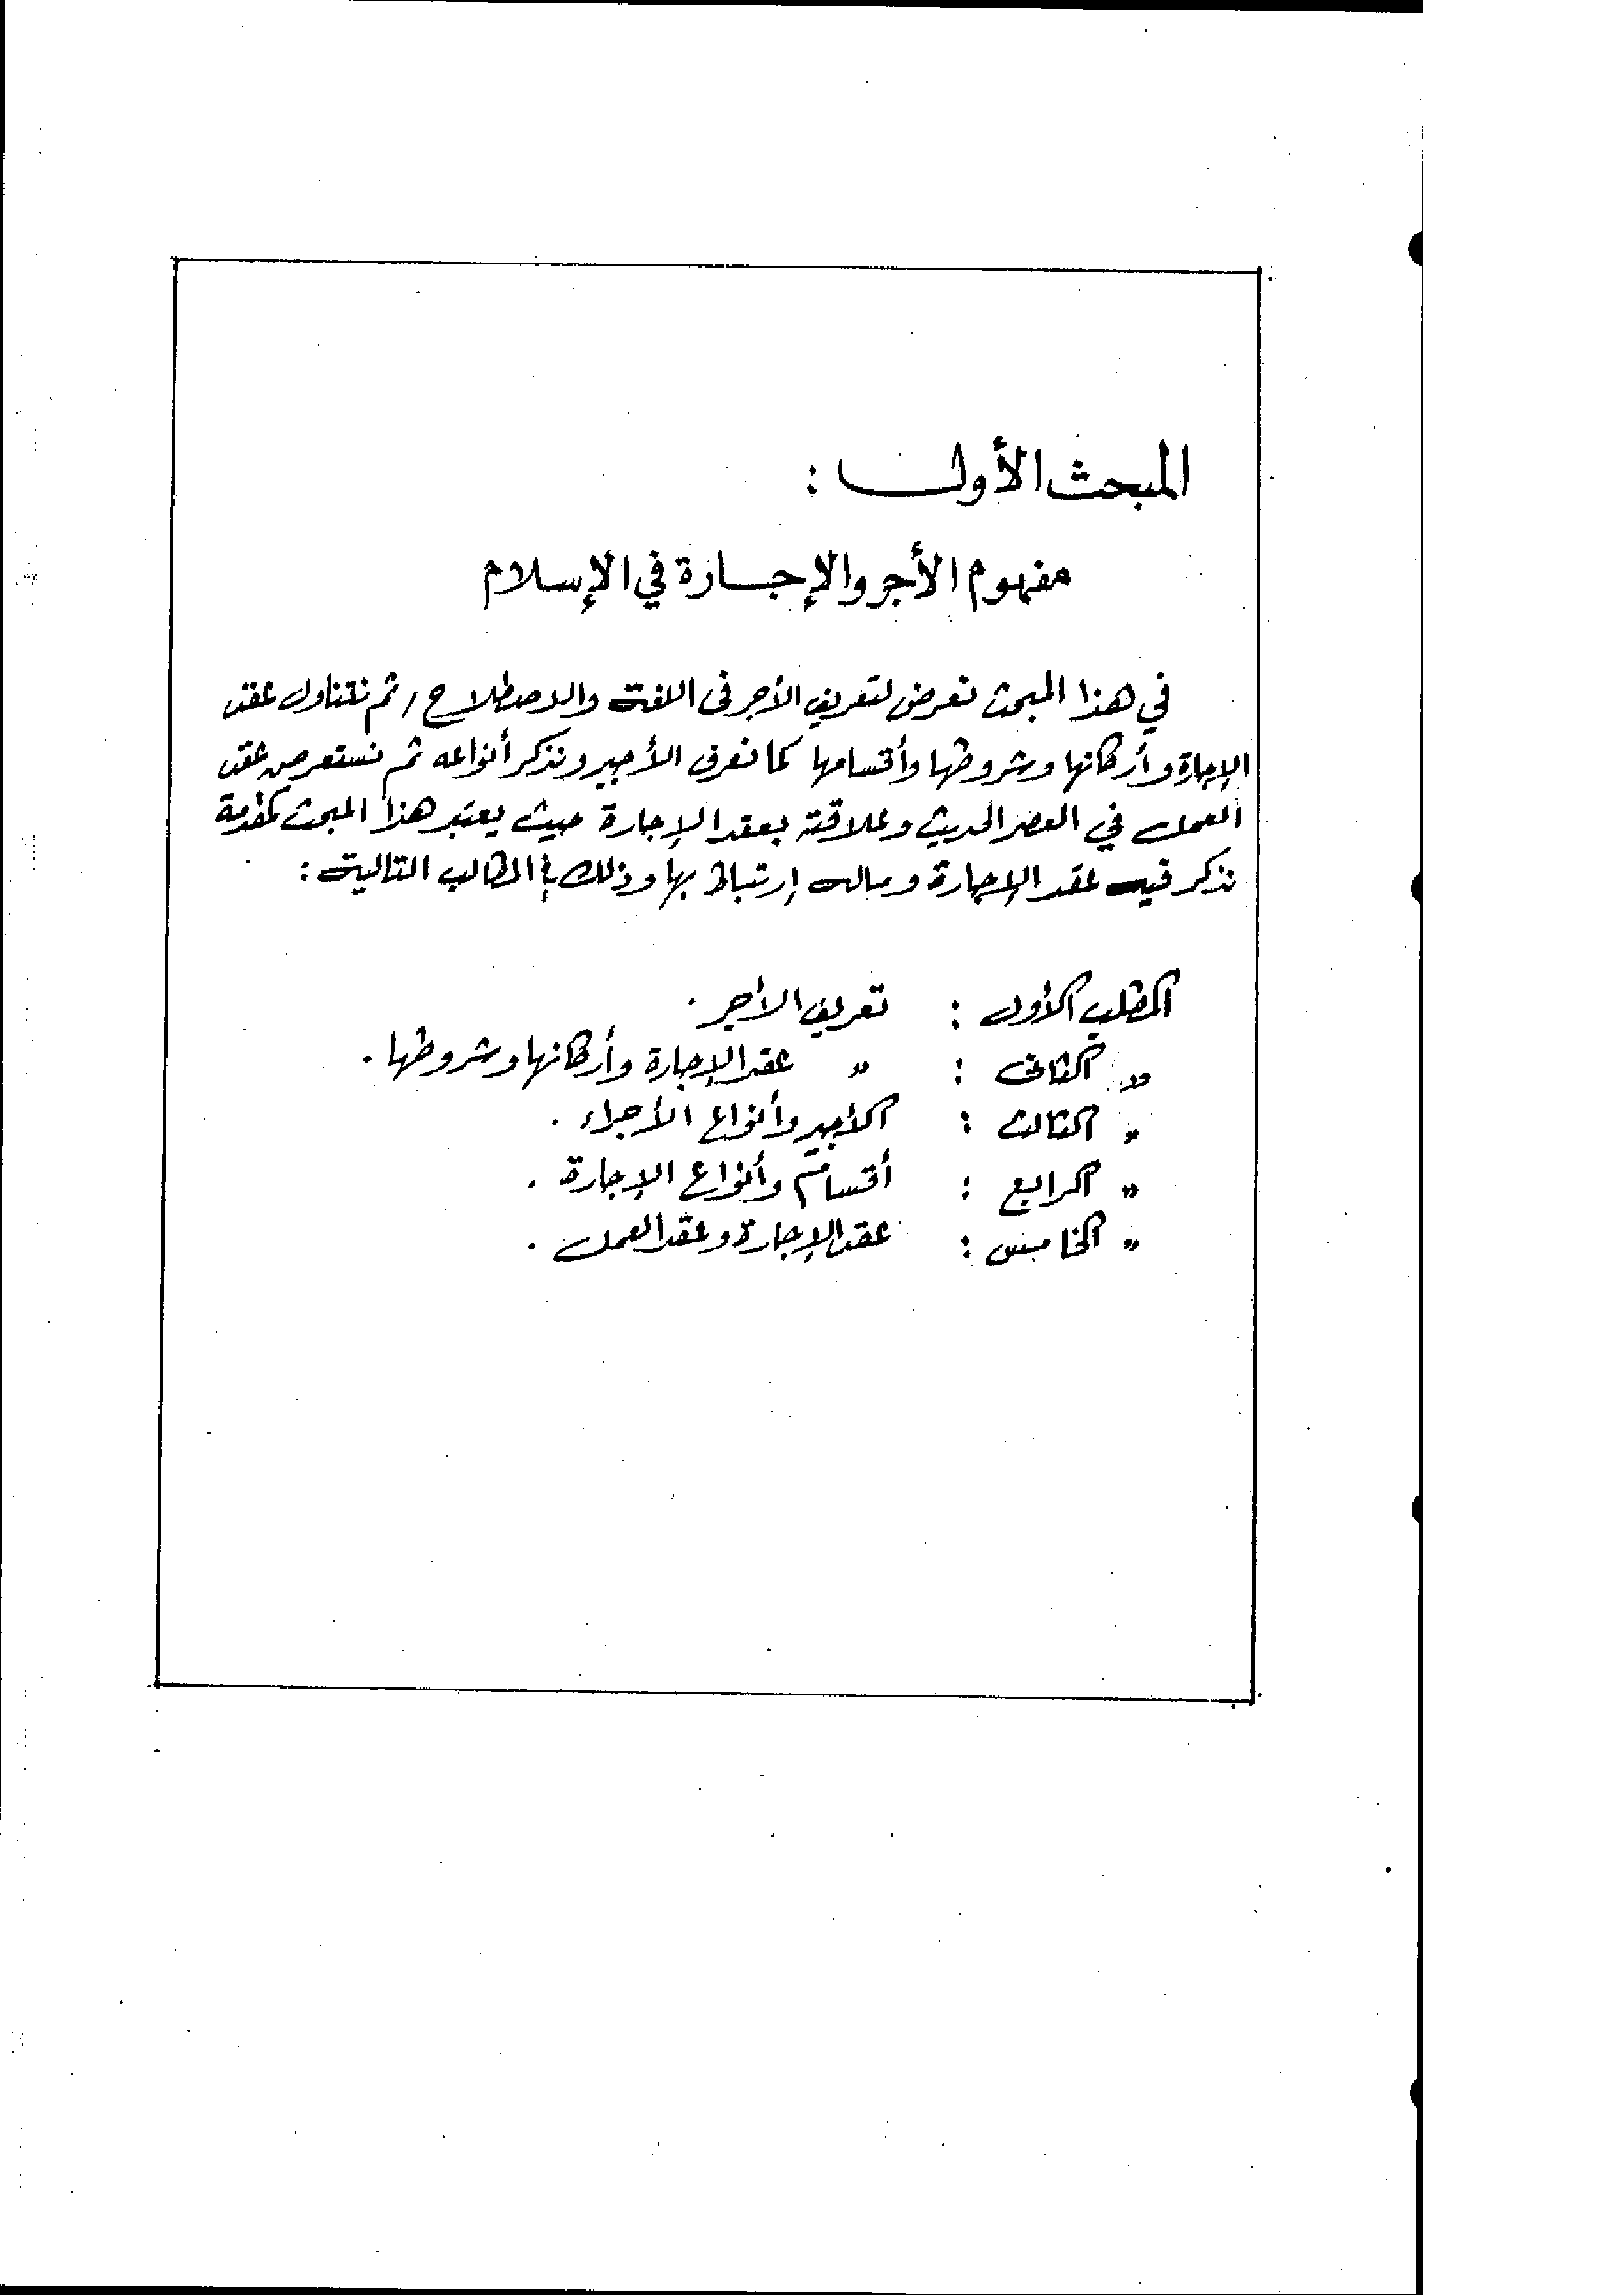 المبحث الأول :
مفهوم الأجر والإجارة في الإسلام
في هذا المبحث نعرض لتعريف الأجر فى اللغة والاصطلاح ، ثم نتناول عقد
الإجارة وأركانها وشروطها وأقسامها كما نعرف الأجير ونذكر أنواعه ثم نستعرض عقد
العمل في العصر الحديث وعلاقته بعقد الإجارة حيث يعتبر هذا المبحث كمقدمة
نذكر فيه عقد الإجارة وماله إرتباط بها وذلك في المطالب التالية :
المطلب الأول : تعريف الأجر .
" الثانى : " عقد الإجارة وأركانها وشروطها .
" الثالث : الأجير وأنواع الأجراء .
" الرابع : أقسام وأنواع الإجارة .
" الخامس : عقد الإجارة وعقد العمل .